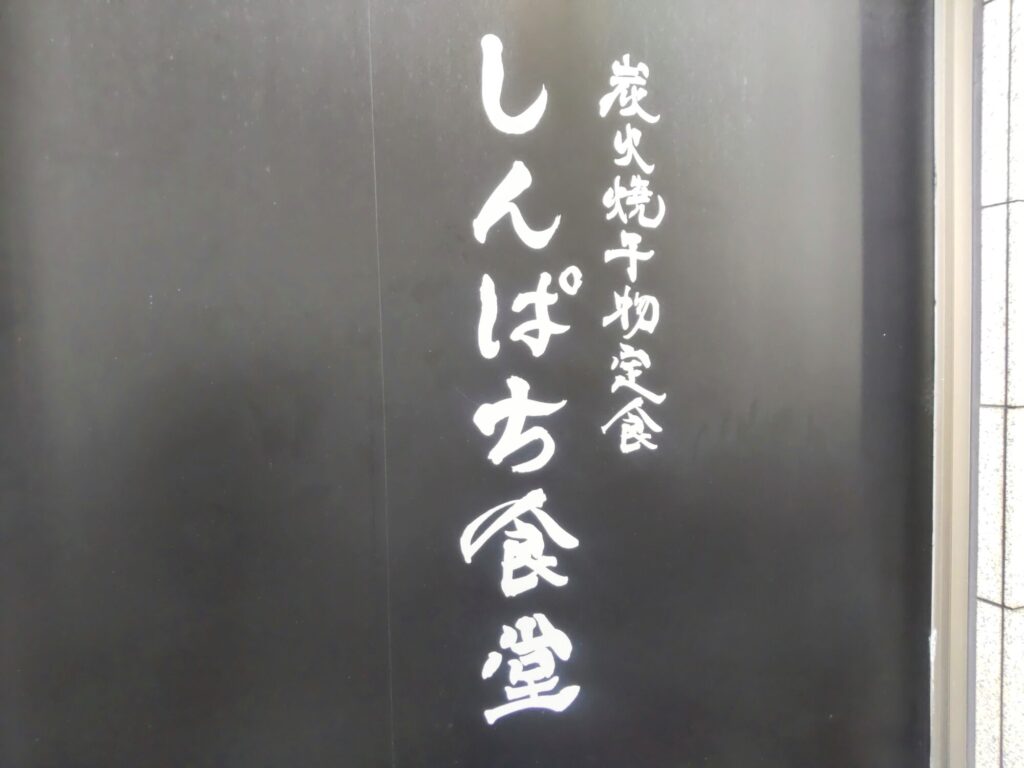 炭火焼干物定食
しんぱち食堂